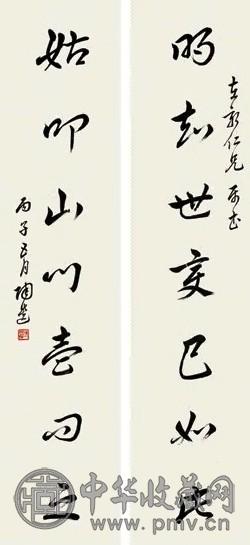 仁兄属书
明知世变已如此
姑叩山门壹问之
丙子五月陶遗
中华收藏网
www.pmv.cn